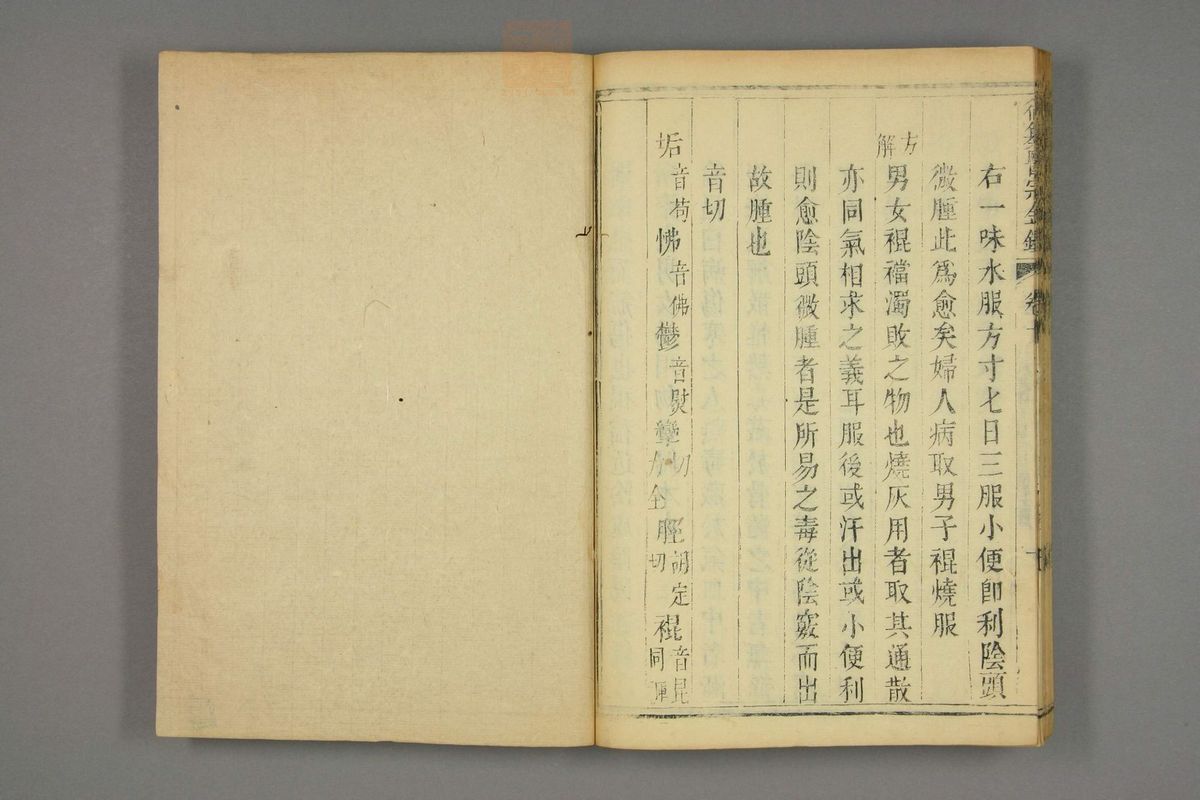 右一味水服方寸匕日三服小便卽利陰頭
微腫此爲愈矣婦人病取男子裩燒服
方解
男女裩襠濁敗之物也燒灰用者取其通散
亦同氣相求之義耳服後或汗出或小便利
則愈陰頭微腫者是所易之毒從陰竅而出
故腫也
音切
垢音苟怫音佛鬱音熨攣切全脛胡定切裩音昆同